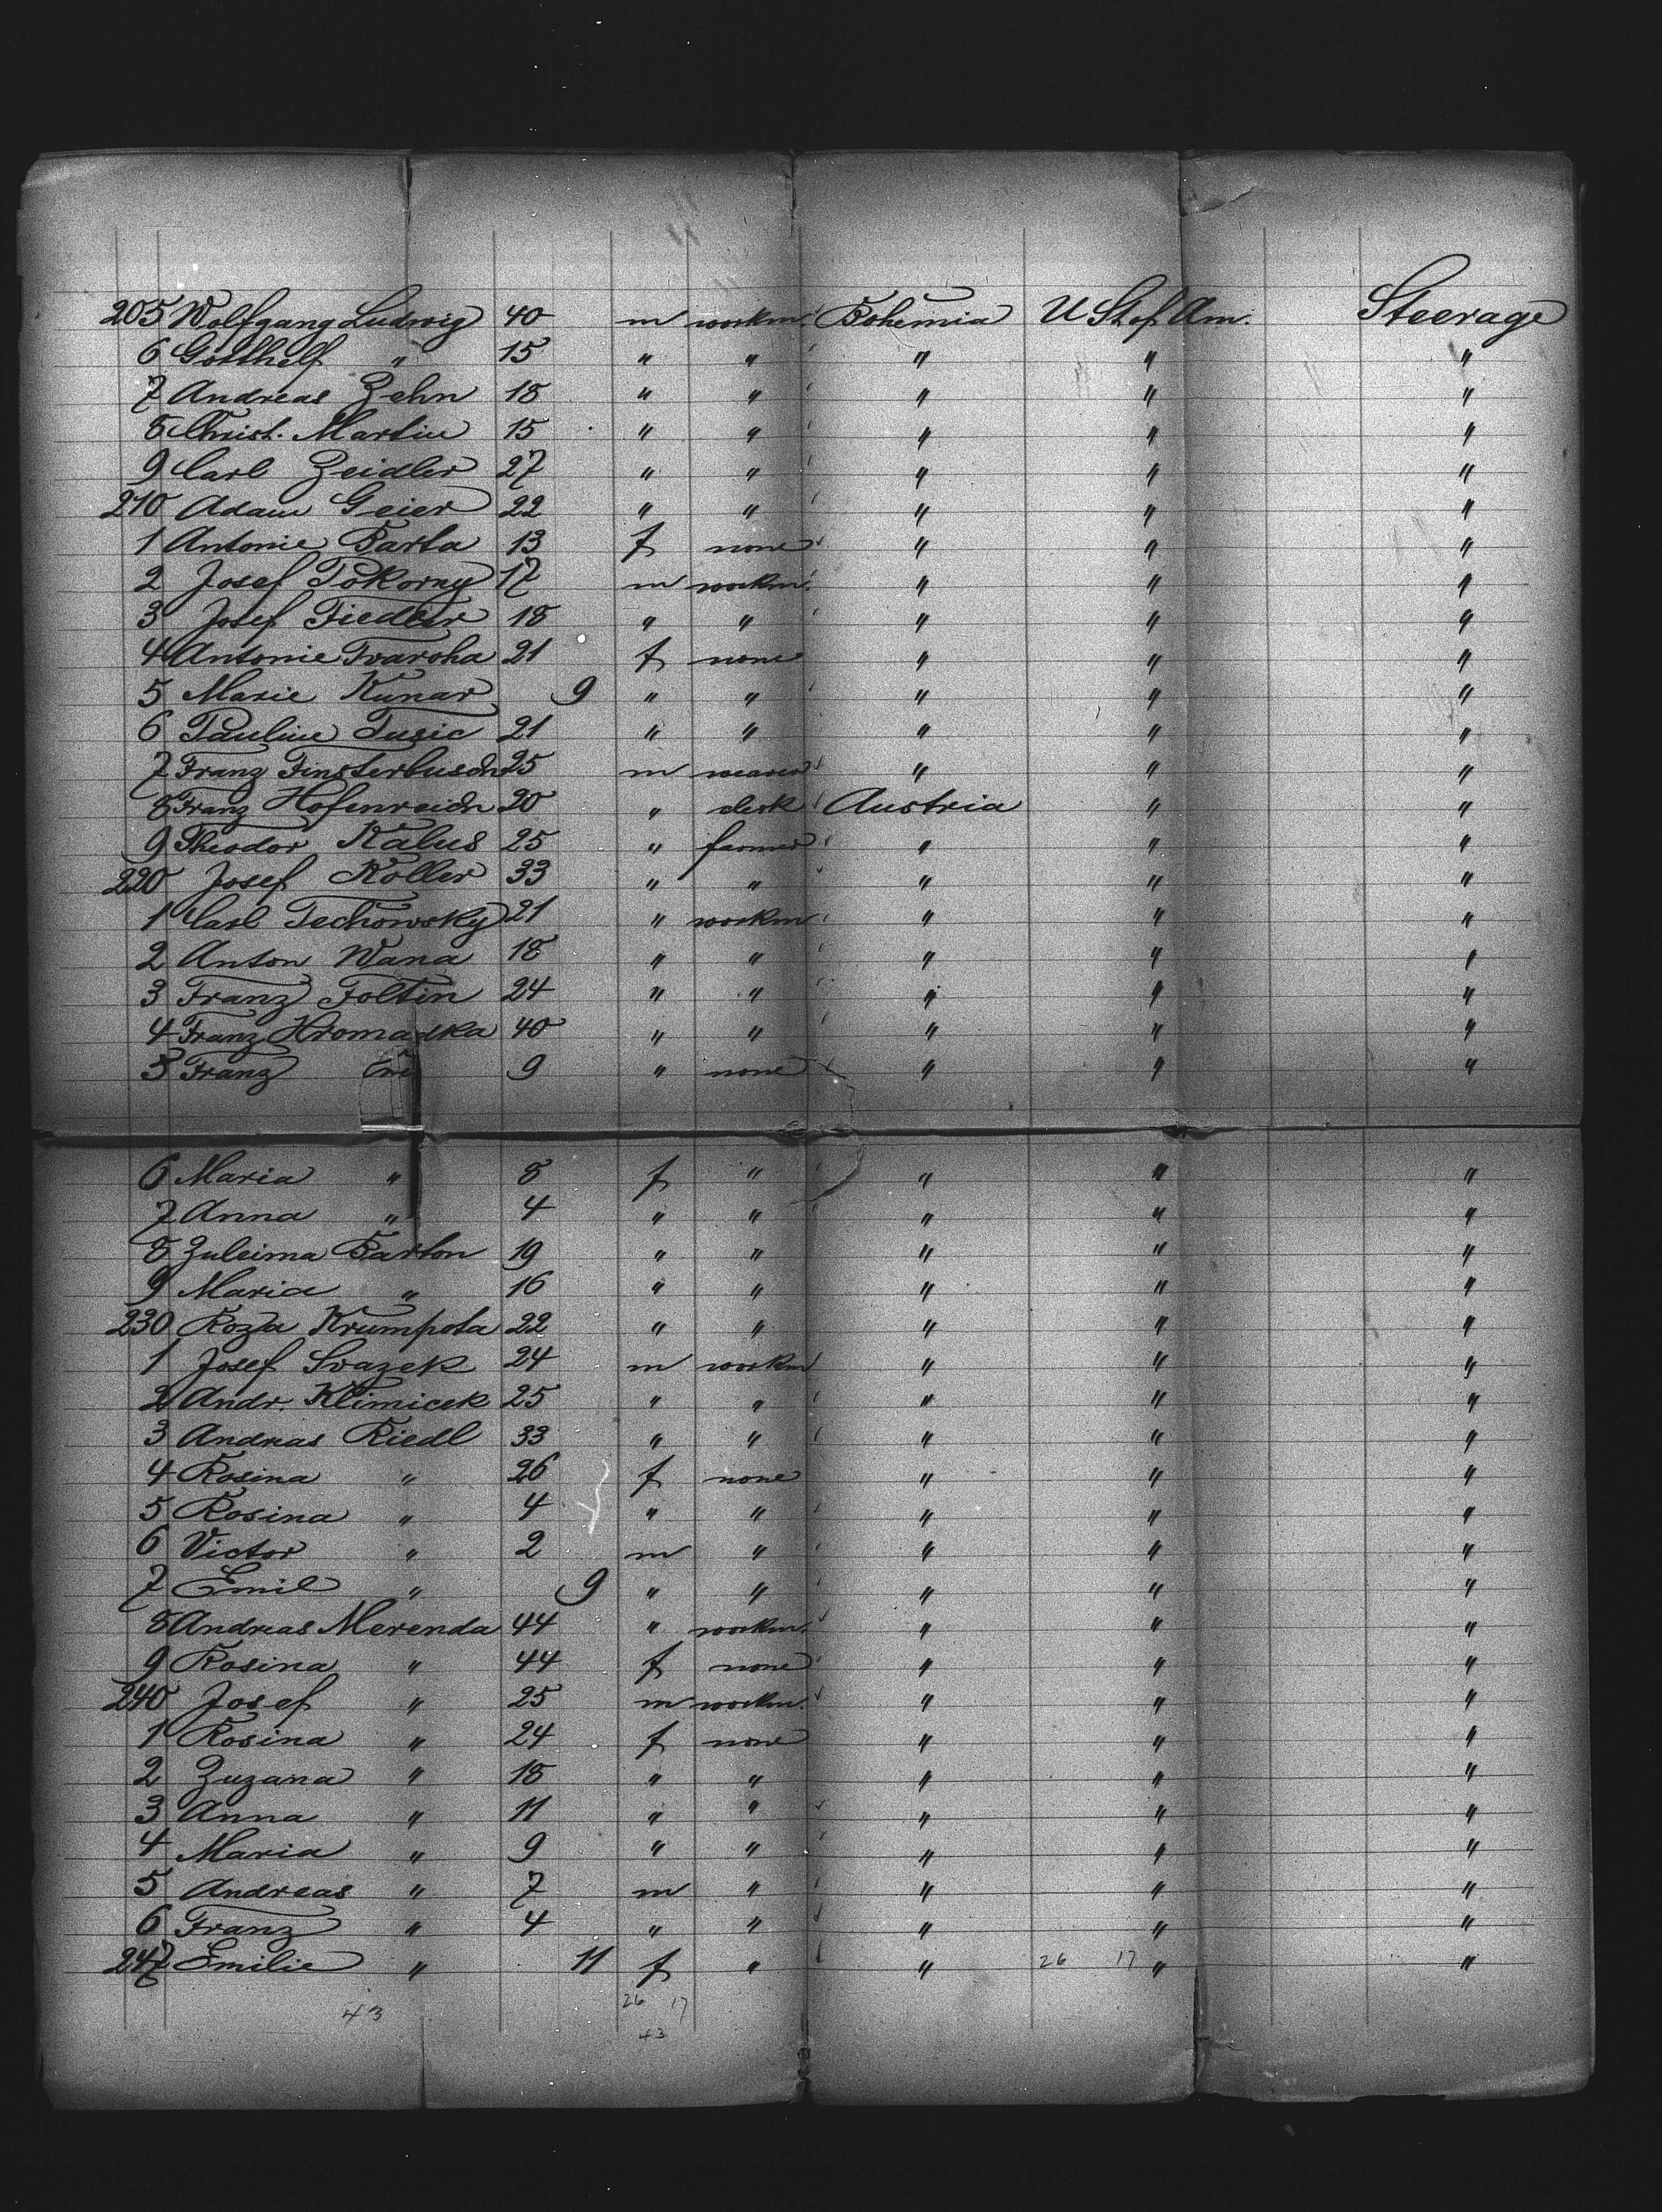 205 Wolfgang Ludwig 40 m workm. Bohemia U St of Am. Steerage
6 Gotthelf " 15 " " " " "
7 Andreas Zehn 18 " " " " "
8 Christ. Martin 15 " " " " "
9 Carl Zeidler 27 " " " " "
210 Adam Geier 22 " " " " "
1 Antonie Barta 13 f none " " "
2 Josef Pokorny 17 m workm. " " "
3 Josef Fiedler 18 " " " " "
4 Antonie Tvaroha 21 f none " " "
5 Marie Kunar 9 " " " " "
6 Pauline Tusic 21 " " " " "
7 Franz Finsterbusch 25 m weaver " " "
8 Franz Hofenreich 20 " clerk Austria " "
9 Theodor Kalus 25 " farmer " " "
220 Josef Koller 33 " " " " "
1 Carl Techowsky 21 " workm " " "
2 Anton Wana 18 " " " " "
3 Franz Foltin 24 " " " " "
4 Franz Hromadka 40 " " " " "
5 Franz 9 " none " " "
6 Maria " 8 f " " " "
7 Anna " 4 " " " " "
8 Zuleima Barton 19 " " " " "
9 Maria " 16 " " " " "
230 Rozia Krumpota 22 " " " " "
1 Josef Svazek 24 m workm " " "
2 Andr. Klimicek 25 " " " " "
3 Andreas Riedl 33 " " " " "
4 Rosina " 26 f none " " "
5 Rosina " 4 " " " " "
6 Victor " 2 m " " " "
7 Emil " 9 " " " " "
8 Andreas Merenda 44 " workm. " " "
9 Rosina " 44 f none " " "
240 Josef " 25 m workm. " " "
1 Rosina " 24 f none " " "
2 Zuzana " 18 " " " " "
3 Anna " 11 " " " " "
4 Maria " 9 " " " " "
5 Andreas " 7 m " " " "
6 Franz " 4 " " " " "
247 Emilie " 11 f " " 26 17 " "
43 26 17
43